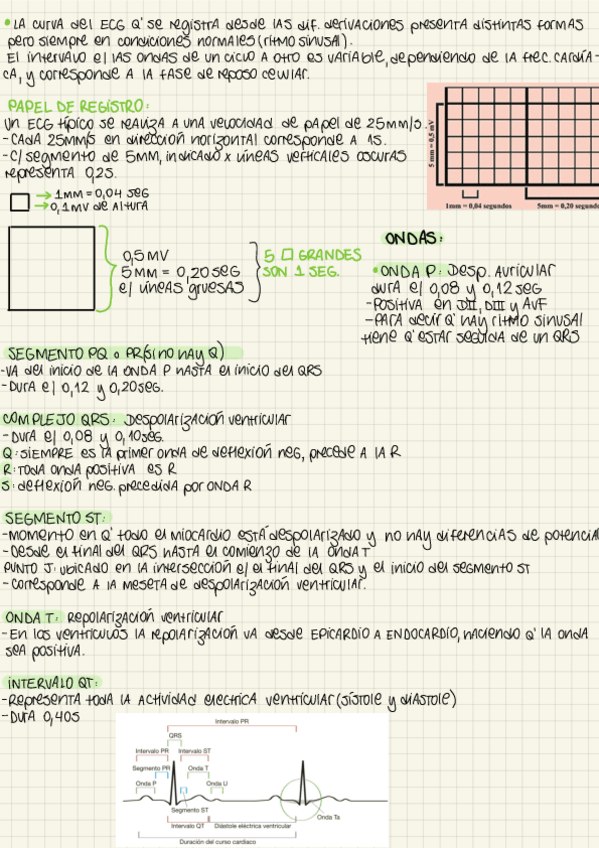 • LA CURVA DEL ECG Q' SE REGISTRA DESDE LAS DIF. DERIVACIONES PRESENTA DISTINTAS FORMAS
PERO SIEMPRE EN CONDICIONES NORMALES (RITMO SINUSAL).
EL INTERVALO E/ LAS ONDAS DE UN CICLO A OTRO ES VARIABLE, DEPENDIENDO DE LA FREC. CARDÍA-
CA, Y CORRESPONDE A LA FASE DE REPOSO CELULAR.
PAPEL DE REGISTRO:
UN ECG TÍPICO SE REALIZA A UNA VELOCIDAD DE PAPEL DE 25MM/S.
- CADA 25MM/S EN DIRECCIÓN HORIZONTAL CORRESPONDE A 1S.
- C/ SEGMENTO DE 5MM, INDICADO X LINEAS VERTICALES OSCURAS
REPRESENTA 0,2S.
→ 1MM = 0,04 SEG
→ 0,1MV DE ALTURA
5 mm = 0,5 mV
1mm = 0,04 segundos
5mm = 0,20 segund
0,5 MV
5MM = 0,20SEG
E/ LINEAS GRUESAS
5 □ GRANDES
SON 1 SEG.
ONDAS:
• ONDA P: DESP. AURICULAR
DURA E/ 0,08 Y 0,12 SEG
- POSITIVA EN DII, DIII Y AVF
- PARA DECIR Q' HAY RITMO SINUSAL
TIENE Q' ESTAR SEGUIDA DE UN QRS
SEGMENTO PQ O PR(SI NO HAY Q)
- VA DEL INICIO DE LA ONDA P HASTA EL INICIO DEL QRS
- DURA E/ 0,12 Y 0,20SEG.
COMPLEJO QRS: DESPOLARIZACIÓN VENTRICULAR
- DURA E/ 0,08 Y 0,10SEG.
Q: SIEMPRE ES LA PRIMER ONDA DE DEFLEXIÓN NEG, PRECEDE A LA R
R: TODA ONDA POSITIVA ES R
S: DEFLEXIÓN NEG. PRECEDIDA POR ONDA R
SEGMENTO ST:
- MOMENTO EN Q' TODO EL MIOCARDIO ESTÁ DESPOLARIZADO Y NO HAY DIFERENCIAS DE POTENCIA
- DESDE EL FINAL DEL QRS HASTA EL COMIENZO DE LA ONDA T
PUNTO J: UBICADO EN LA INTERSECCIÓN E/ EL FINAL DEL QRS Y EL INICIO DEL SEGMENTO ST
- CORRESPONDE A LA MESETA DE DESPOLARIZACIÓN VENTRICULAR.
ONDA T: REPOLARIZACIÓN VENTRICULAR
- EN LOS VENTRÍCULOS LA REPOLARIZACIÓN VA DESDE EPICARDIO A ENDOCARDIO, HACIENDO Q' LA ONDA
SEA POSITIVA.
INTERVALO QT:
- REPRESENTA TODA LA ACTIVIDAD ELECTRICA VENTRICULAR (SÍSTOLE Y DIÁSTOLE)
- DURA 0,40S
Intervalo PR
QRS
Intervalo PR Intervalo ST
Segmento PR Onda T
Onda P Onda U
Segmento ST
Onda Ta
Intervalo QT Diástole eléctrica ventricular
Duración del curso cardiaco